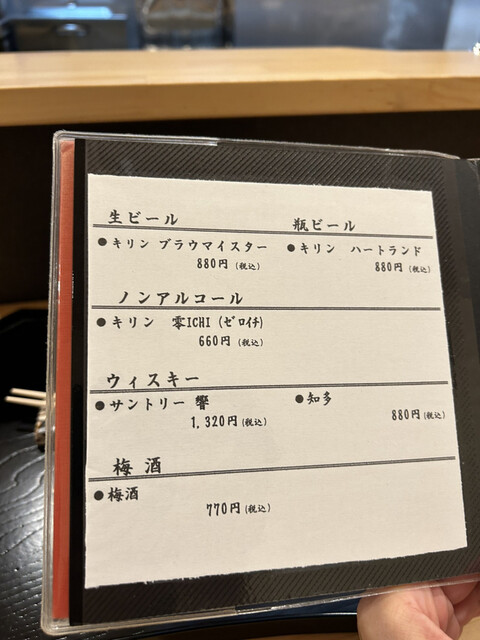 生ビール 瓶ビール
●キリン ブラウマイスター ●キリン ハートランド
880円(税込) 880円(税込)
ノンアルコール
●キリン 零ICHI(ｾﾞﾛｲﾁ)
660円(税込)
ウィスキー
●サントリー 響 ●知多
1,320円(税込) 880円(税込)
梅酒
●梅酒
770円(税込)